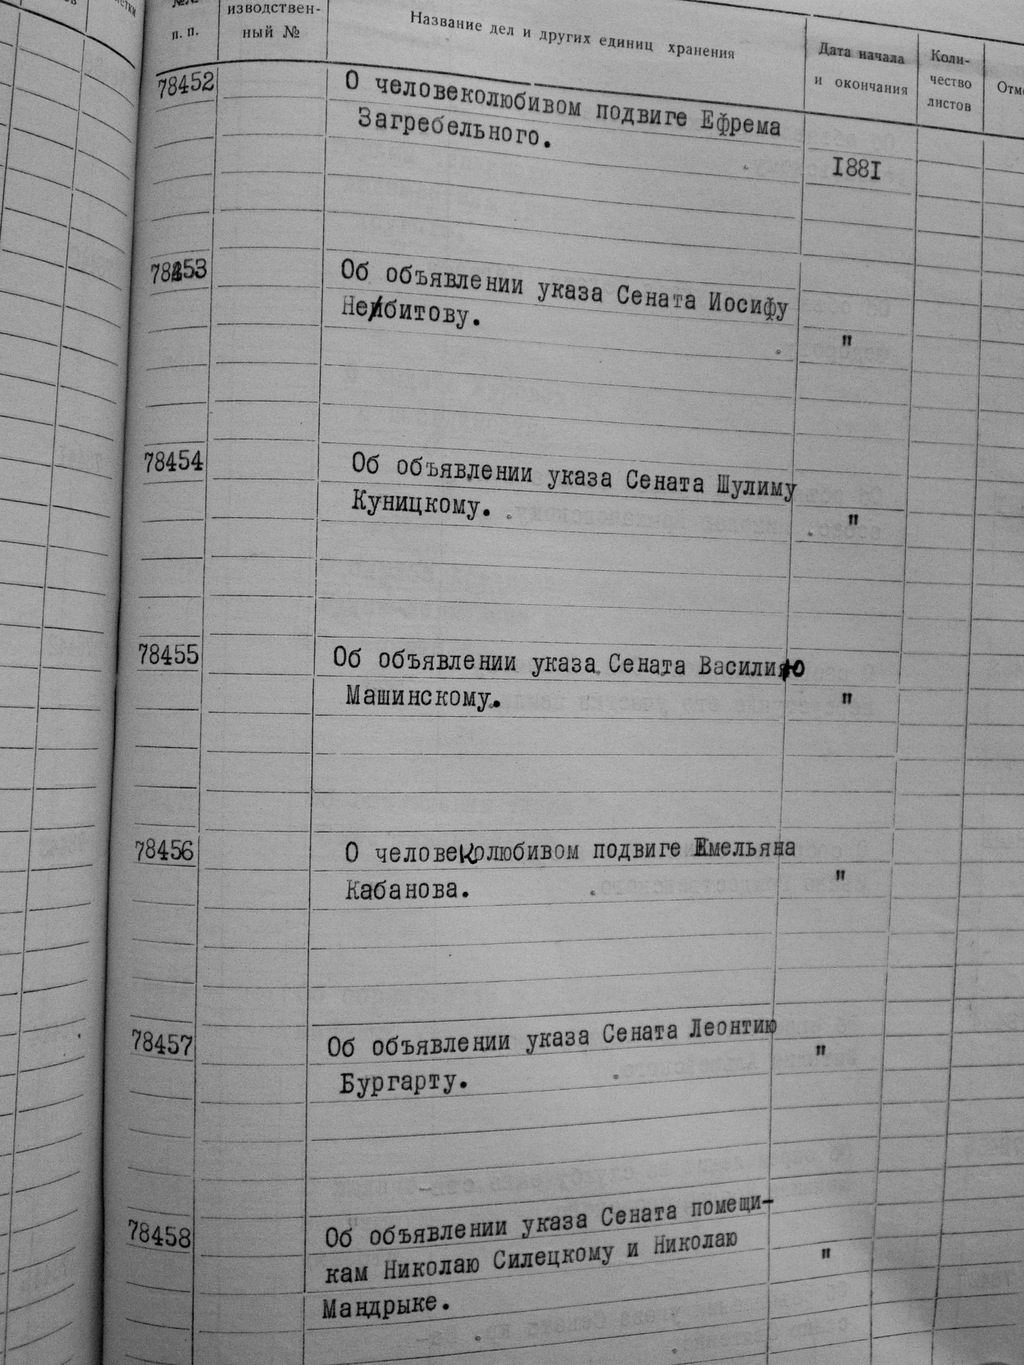 п. п.
изводствен-
ный №
Название дел и других единиц хранения
Дата начала
и окончания
Коли-
чество
листов
78452
О человеколюбивом подвиге Ефрема
Загребельного.
1881
78453
Об объявлении указа Сената Иосифу
"
78454
Об объявлении указа Сената Шулиму
Куницкому.
"
78455
Об объявлении указа Сената Василию
Машинскому.
"
78456
О человеколюбивом подвиге Емельяна
Кабанова.
"
78457
Об объявлении указа Сената Леонтию
Бургарту.
"
78458
Об объявлении указа Сената помещи-
кам Николаю Силецкому и Николаю
Мандрыке.
"